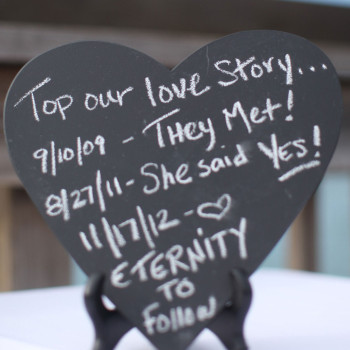 Top our love Story...
9/10/09 - THey Met!
8/27/11 - She said YES!
11/17/12 - ♡
ETERNITY
TO
Follow